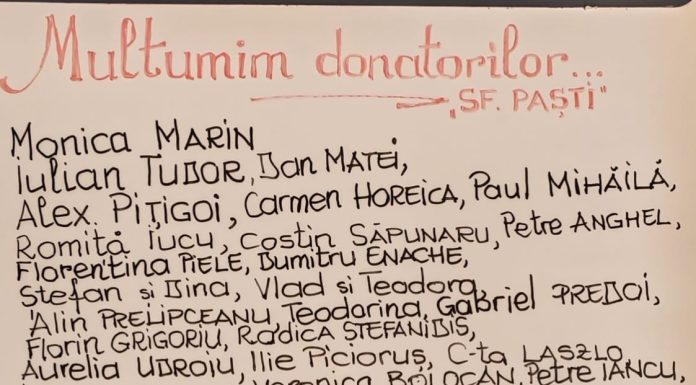 Multumim donatorilor...
„SF. PAȘTI"
Monica MARIN
Iulian TUDOR, Dan MATEI,
Alex. PIȚIGOI, Carmen HOREICA, Paul MIHĂILĂ,
Romită Iucu, Costin SĂPUNARU, Petre ANGHEL,
Florentina PIELE, Dumitru ENACHE,
Stefan și Dina, Vlad și Teodora,
Alin PRELIPCEANU, Teodorina, Gabriel PREDOI,
Florin GRIGORIU, Rodica ȘTEFANIDIS,
Aurelia UDROIU, Ilie Piciorus, C-ta LASZLO
Veronica BOLOCAN, Petre IANCU,